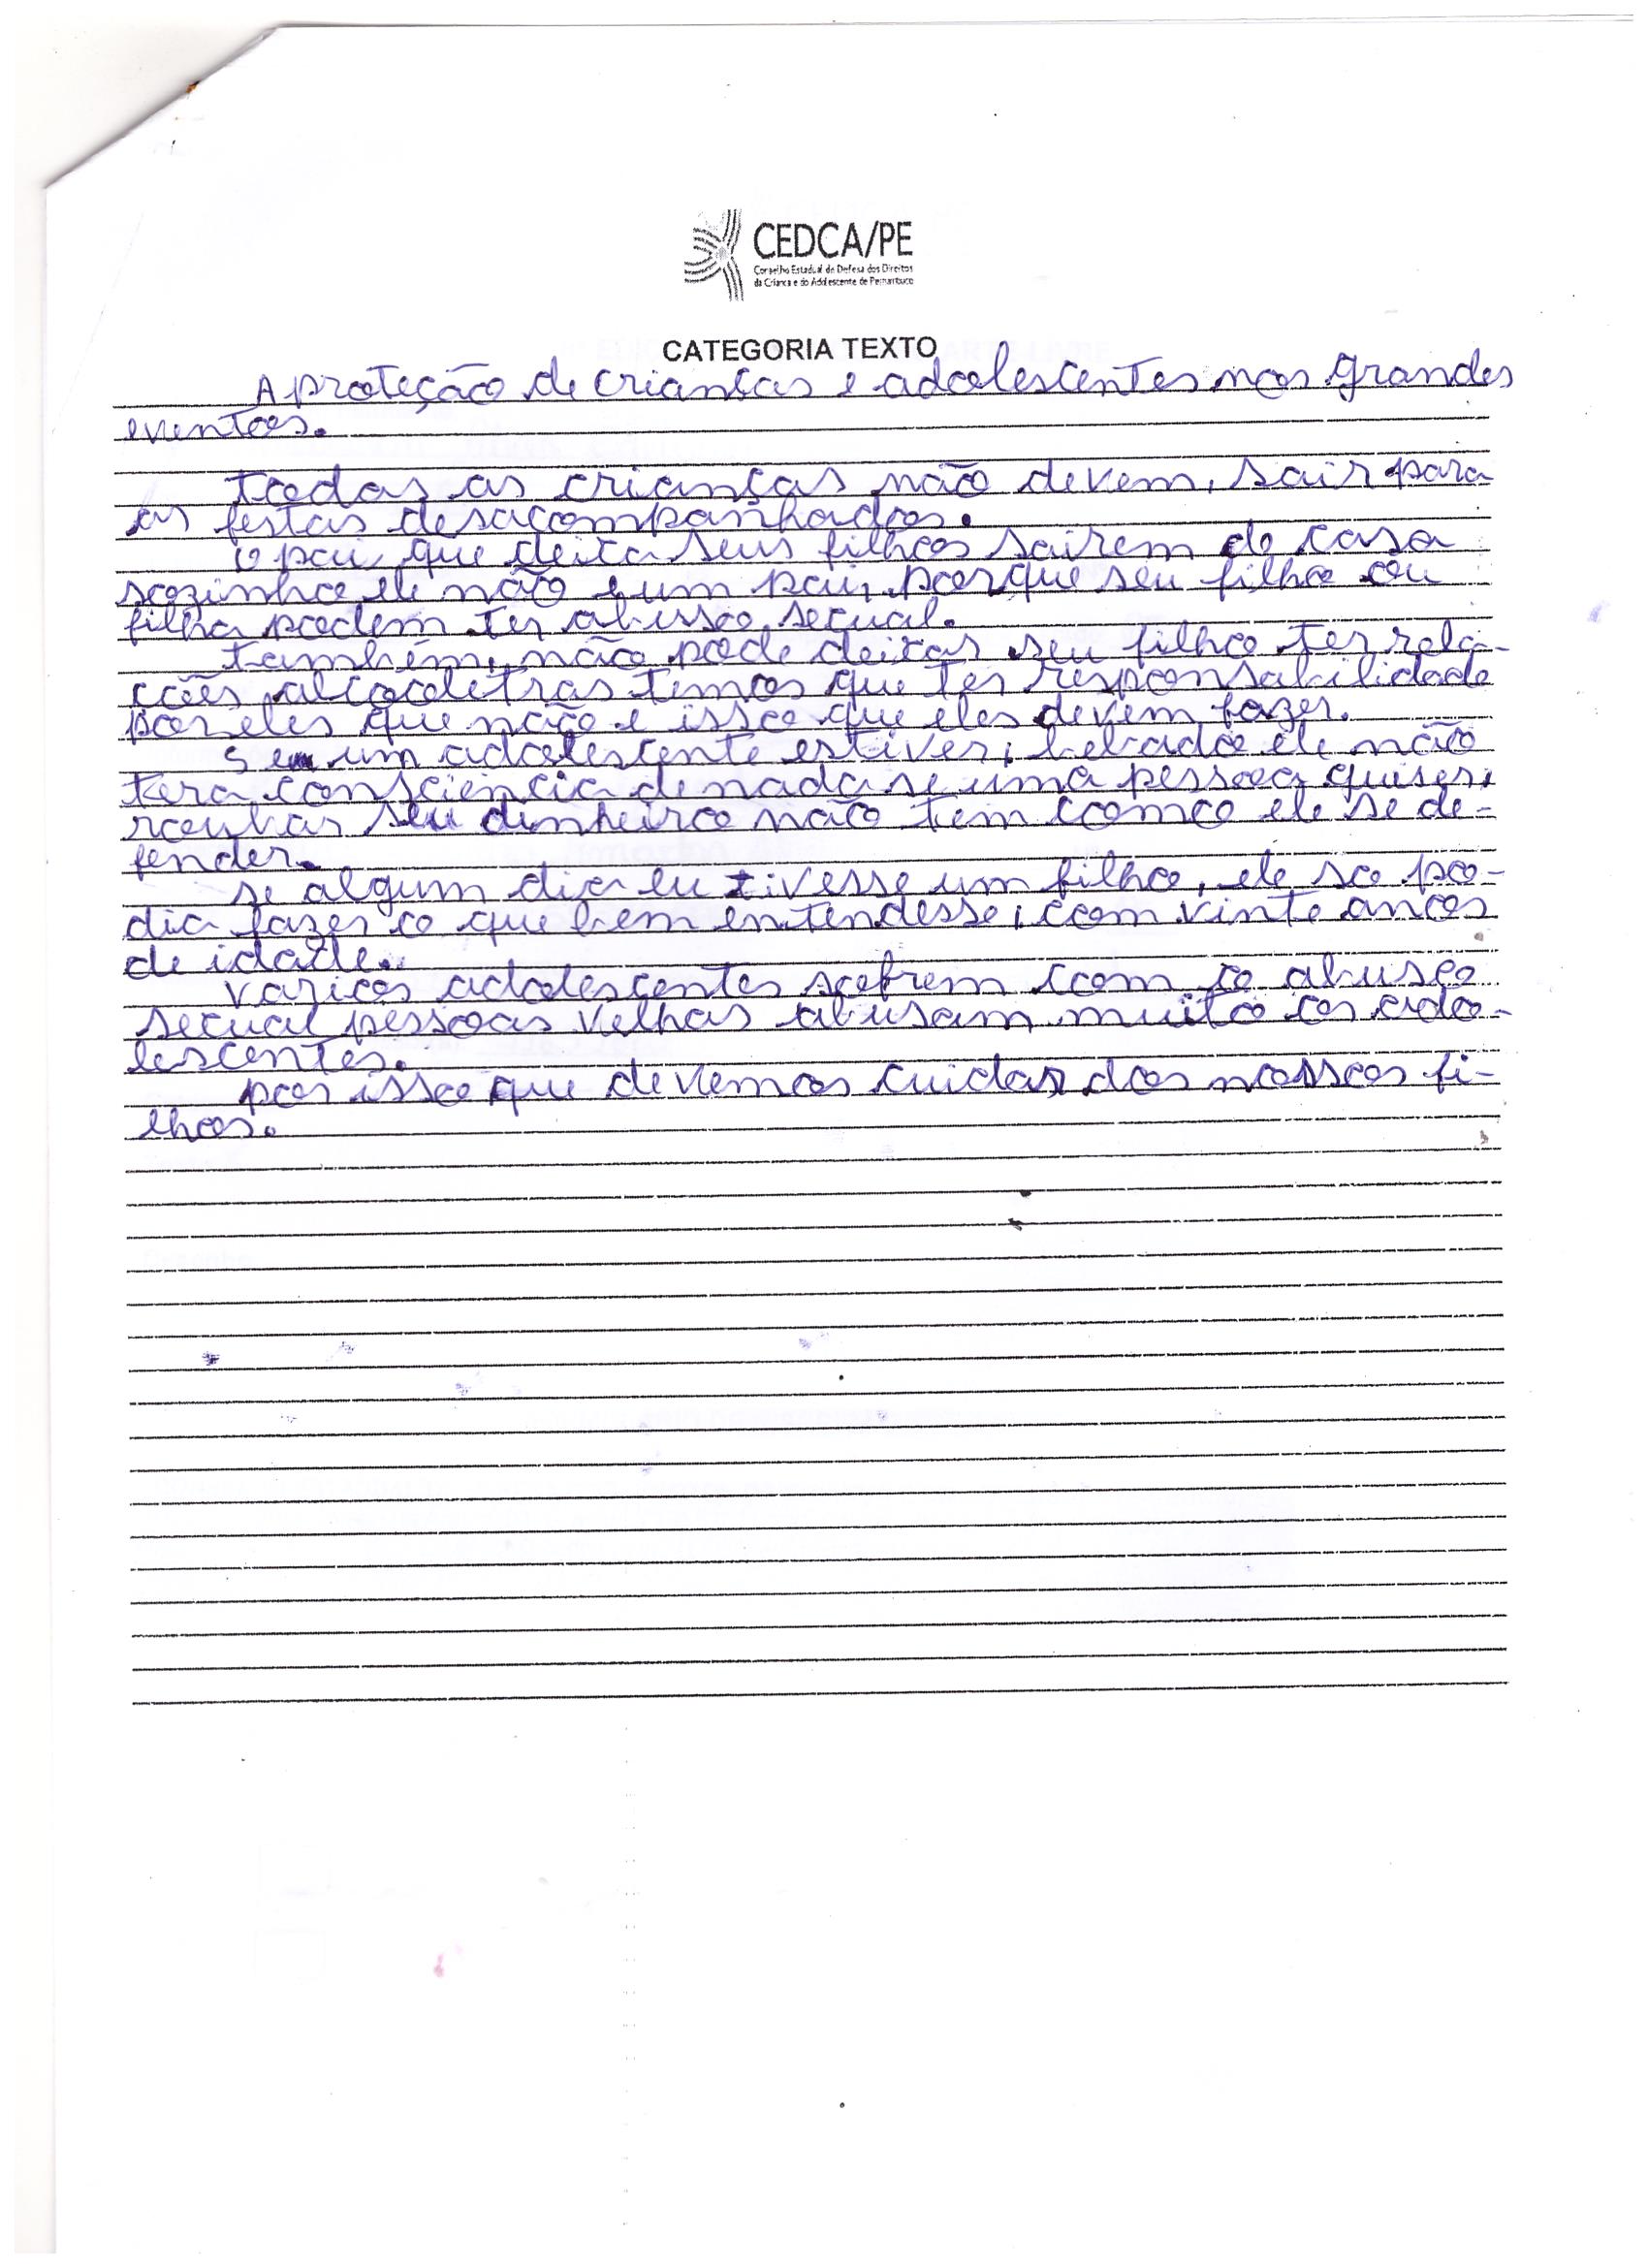 CEDCA/PE
Conselho Estadual de Defesa dos Direitos
da Criança e do Adolescente de Pernambuco
CATEGORIA TEXTO
A proteção de crianças e adolescentes nos grandes
eventos.
todas as crianças não devem, sair para
as festas desacompanhados.
O pai que deica seus filhos sairem de casa
sozinho ele não e um pai, porque seu filho ou
filha podem ter abusso secual.
também, não pode deicar seu filho ter rela-
ções alcocoletras temos que ter responsabilidade
por eles que não e isso que eles devem fazer.
Se um adolescente estiver, bebado ele não
tera consciencia de nada se uma pessoa quiser,
roubar seu dinheiro não tem como ele se de-
fender.
se algum dia eu tivesse um filho, ele so po-
dia fazer o que bem entendesse, com vinte anos
de idade.
varios adolescentes sofrem com o abuso
secual pessoas velhas abusam muito os ado-
lescentes.
por isso que devemos cuidar dos nossos fi-
lhos.